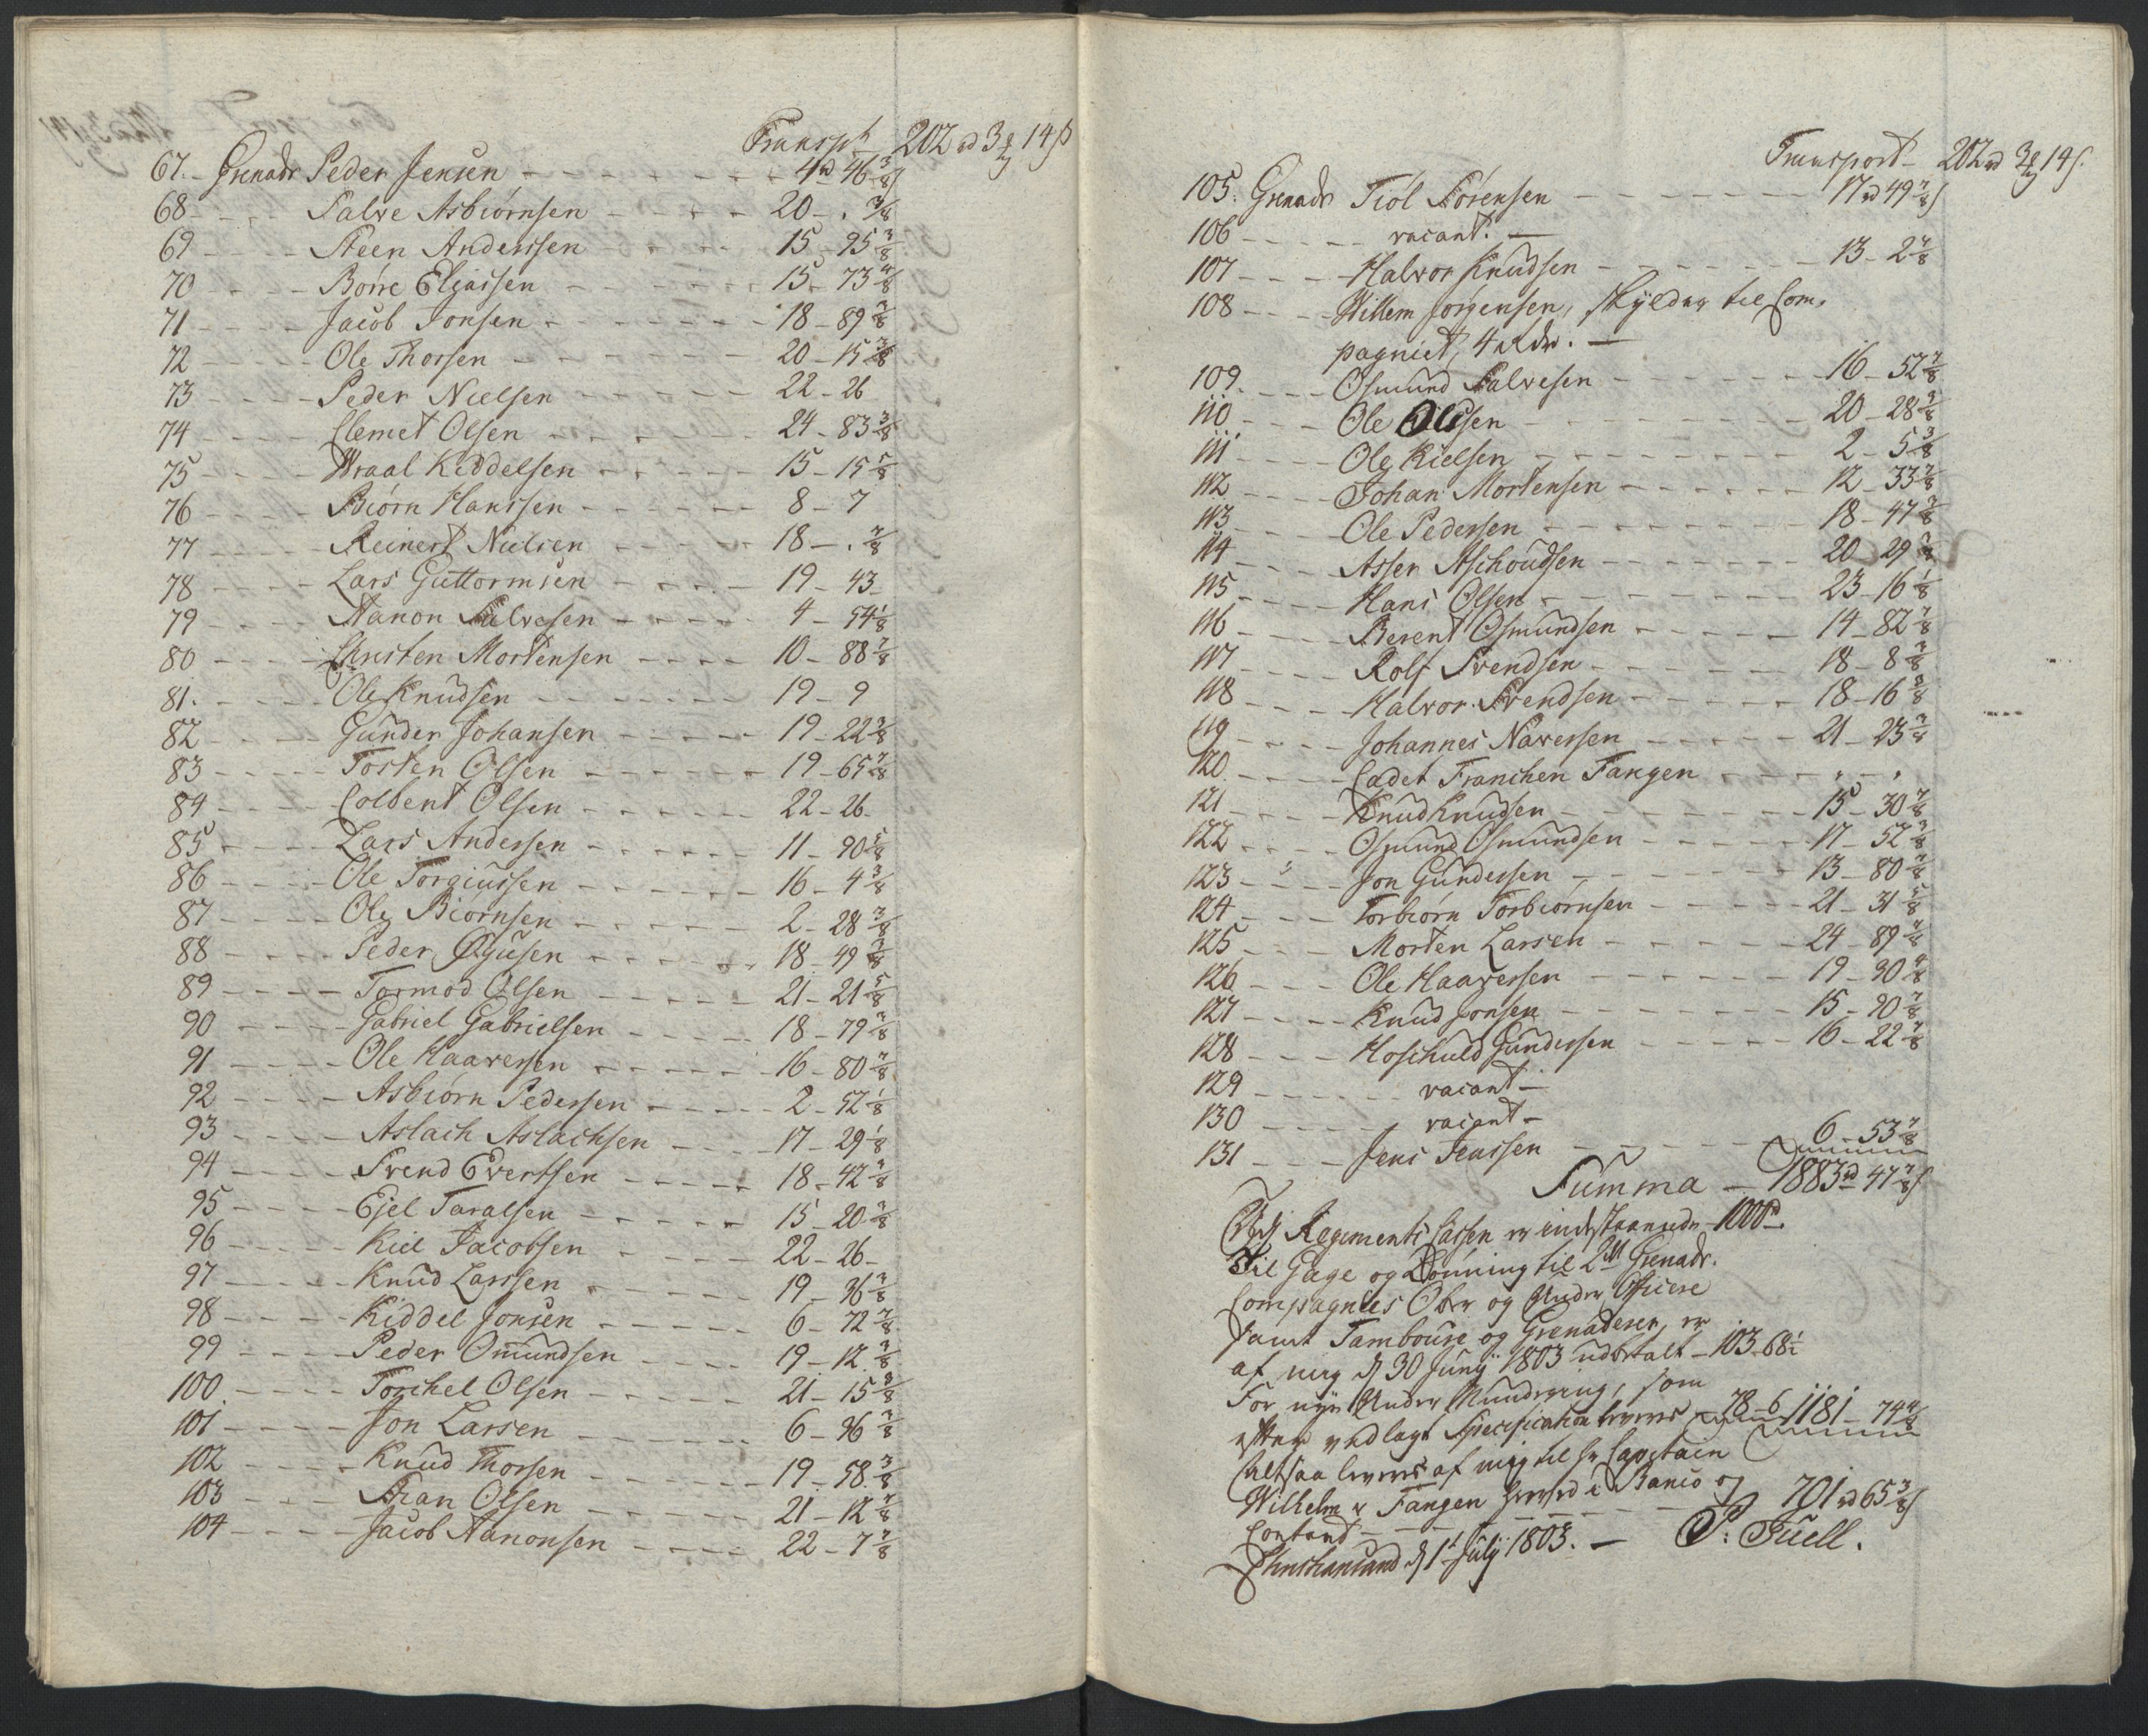 Transpt 202 rd 3 ℔ 14 ß
67. Grenadr Peder Jensen - 4 rd 46 3/8 ß
68 - Salve Asbiørnsen - 20 - . 3/8
69 - Steen Anderssen - 15 - 95 3/8
70 - Børre Eliassen - 15 - 73 4/8
71 - Jacob Jonsen - 18 - 89 7/8
72 - Ole Thorsen - 20 - 15 3/8
73 - Peder Nielsen - 22 - 26
74 - Clemet Olsen - 24 - 83 3/8
75 - Wraal Kiddelsen - 15 - 15 5/8
76 - Biørn Hanssen - 8 - 7
77 - Reinert Nielsen - 18 - . 7/8
78 - Lars Guttormsen - 19 - 43
79 - Aanon Salvesen - 4 - 54 1/8
80 - Christen Mortensen - 10 - 88 7/8
81. - Ole Knudsen - 19 - 9
82 - Gunder Johansen - 19 - 22 3/8
83 - Torsten Olsen - 19 - 65 7/8
84 - Colbent Olsen - 22 - 26
85 - Lars Andersen - 11 - 90 5/8
86 - Ole Torgiussen - 16 - 4 3/8
87 - Ole Biørnsen - 2 - 28 3/8
88 - Peder Øyusen - 18 - 49 7/8
89 - Tormod Olsen - 21 - 21 5/8
90 - Gabriel Gabrielsen - 18 - 79 7/8
91 - Ole Haaversen - 16 - 80 7/8
92 - Asbiørn Pedersen - 2 - 52 1/8
93 - Aslach Aslachsen - 17 - 29 1/8
94 - Svend Evertsen - 18 - 42 7/8
95 - Ejel Taralsen - 15 - 20 7/8
96 - Kiel Jacobsen - 22 - 26
97 - Knud Larssen - 19 - 36 7/8
98 - Kiddel Jonsen - 6 - 72 7/8
99 - Peder Omundsen - 19 - 12 3/8
100 - Torchel Olsen - 21 - 15 3/8
101 - Jon Larsen - 6 - 36 7/8
102 - Knud Thorsen - 19 - 58 3/8
103 - Stian Olsen - 21 - 12 7/8
104 - Jacob Aanonsen - 22 - 7 7/8
Transport - 202 rd 3 ℔ 14 ß.
105. Grenadr Tiøl Sørensen - 17 rd 49 7/8 ß
106 - vacant. -
107 - Halvor Knudsen - 13 - 2 7/8
108 - Willem Jørgensen, skylder til Com-
pagniet, 4 Rdr. -
109. - Osmund Salvesen - 16 - 52 7/8
110 - Ole Olssen - 20 - 28 3/8
111 - Ole Kielsen - 2 - 5 3/8
112 - Johan Mortensen - 12 - 33 7/8
113 - Ole Pedersen - 18 - 47 3/8
114 - Asser Aschoudsen - 20 - 29 7/8
115 - Hans Olsen - 23 - 16 1/8
116 - Berent Osmundsen - 14 - 82 7/8
117 - Rolf Svendsen - 18 - 8 7/8
118 - Halvor Svendsen - 18 - 16 3/8
119 - Johannes Naversen - 21 - 23 7/8
120 - Cadet Franchen Fangen - " - "
121 - Knud Knudsen - 15 - 30 7/8
122 - Osmund Osmundsen - 17 - 52 3/8
123 - Jon Gundersen - 13 - 80 7/8
124 - Torbiørn Torbiørnsen - 21 - 31 5/8
125 - Morten Larsen - 24 - 89 7/8
126 - Ole Haaversen - 19 - 30 4/8
127 - Knud Jonsen - 15 - 20 7/8
128 - Hoschuld Gundersen - 16 - 22 7/8
129 - vacant -
130 - vacant -
131 - Jens Jenssen - 6 - 53 7/8
Summa - 1883 rd 47 7/8 ß
Regiments Cassen er indestaaende 1000 rd.
Til Gage og Lønning til 2den Grenadr.
Compagnies Ober og Under Officere
samt Tamboure og Grenaderer, er
af mig d 30 Junij 1803 udbetalt - 103 - 68 1/2
For nye Under Mundering, som
efter vedlagt Specification leveres - 78 - 6 1181 - 74 4/8
Altsaa leveres af mig til Hr Capitain
Wilhelm v Fangen herved i Banco og
Contant - 701 rd 65 3/8 ß
Christiansand d 1t July 1803. - P: Tuell.